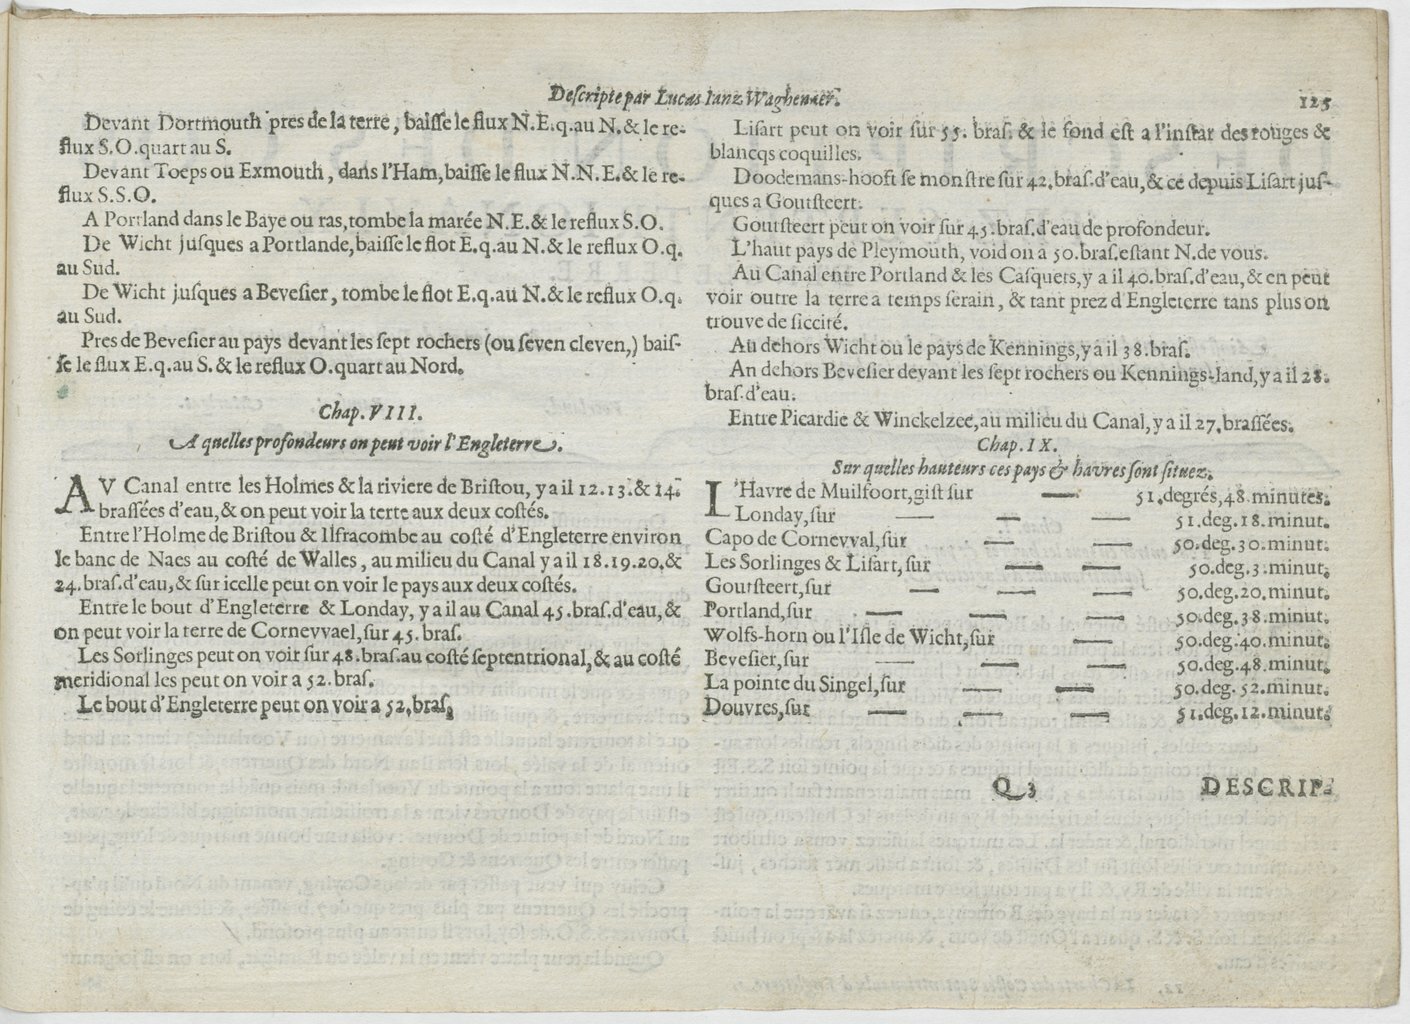 Descripte par Lucas Ianz Waghenaer.
125
Devant Dortmouth pres de la terre, baisse le flux N.E.q.au N.& le re-
flux S.O.quart au S.
Devant Toeps ou Exmouth, dans l'Ham,baisse le flux N.N.E.& le re-
flux S.S.O.
A Portland dans le Baye ou ras,tombe la marée N.E.& le reflux S.O.
De Wicht jusques a Portlande,baisse le flot E.q.au N.& le reflux O.q.
au Sud.
De Wicht jusques a Bevesier, tombe le flot E.q.au N.& le reflux O.q.
au Sud.
Pres de Bevesier au pays devant les sept rochers (ou seven cleven,) bais-
se le flux E.q.au S.& le reflux O.quart au Nord.
Chap. VIII.
A quelles profondeurs on peut voir l'Engleterre.
AV Canal entre les Holmes & la riviere de Bristou, y a il 12.13.& 14.
brassées d'eau,& on peut voir la terre aux deux costés.
Entre l'Holme de Bristou & Ilfracombe au costé d'Engleterre environ
le banc de Naes au costé de Walles, au milieu du Canal y a il 18.19.20,&
24.bras.d'eau,& sur icelle peut on voir le pays aux deux costés.
Entre le bout d'Engleterre & Londay, y a il au Canal 45.bras.d'eau,&
on peut voir la terre de Cornevvael,sur 45. bras.
Les Sorlinges peut on voir sur 48.bras.au costé septentrional,& au costé
meridional les peut on voir a 52.bras.
Le bout d'Engleterre peut on voir a 52,bras.
Lisart peut on voir sur 55. bras. & le fond est a l'instar des rouges &
blancqs coquilles.
Doodemans-hooft se monstre sur 42.bras.d'eau,& ce depuis Lisart jus-
ques a Goutsteert.
Goutsteert peut on voir sur 45.bras.d'eau de profondeur.
L'haut pays de Pleymouth, void on a 50.bras.estant N.de vous.
Au Canal entre Portland & les Casquers,y a il 40.bras.d'eau,& en peut
voir outre la terre a temps serain, & tant prez d'Engleterre tans plus on
trouve de siccité.
Au dehors Wicht ou le pays de Kennings,y a il 38.bras.
An dehors Bevesier devant les sept rochers ou Kennings-land,y a il 28.
bras.d'eau.
Entre Picardie & Winckelzee,au milieu du Canal,y a il 27.brassées.
Chap. IX.
Sur quelles hauteurs ces pays & havres sont situez.
L'Havre de Muilfoort,gist sur — 51.degrés,48.minutes.
Londay,sur — — — 51.deg.18.minut.
Capo de Cornevval,sur — — 50.deg.30.minut.
Les Sorlinges & Lisart,sur — — 50.deg.3.minut.
Goutsteert,sur — — — 50.deg.20.minut.
Portland,sur — — — 50.deg.38.minut.
Wolfs-horn ou l'Isle de Wicht,sur — 50.deg.40.minut.
Bevesier,sur — — — 50.deg.48.minut.
La pointe du Singel,sur — — 50.deg.52.minut.
Douvres,sur — — — 51.deg.12.minut.
Q 3
DESCRIP-